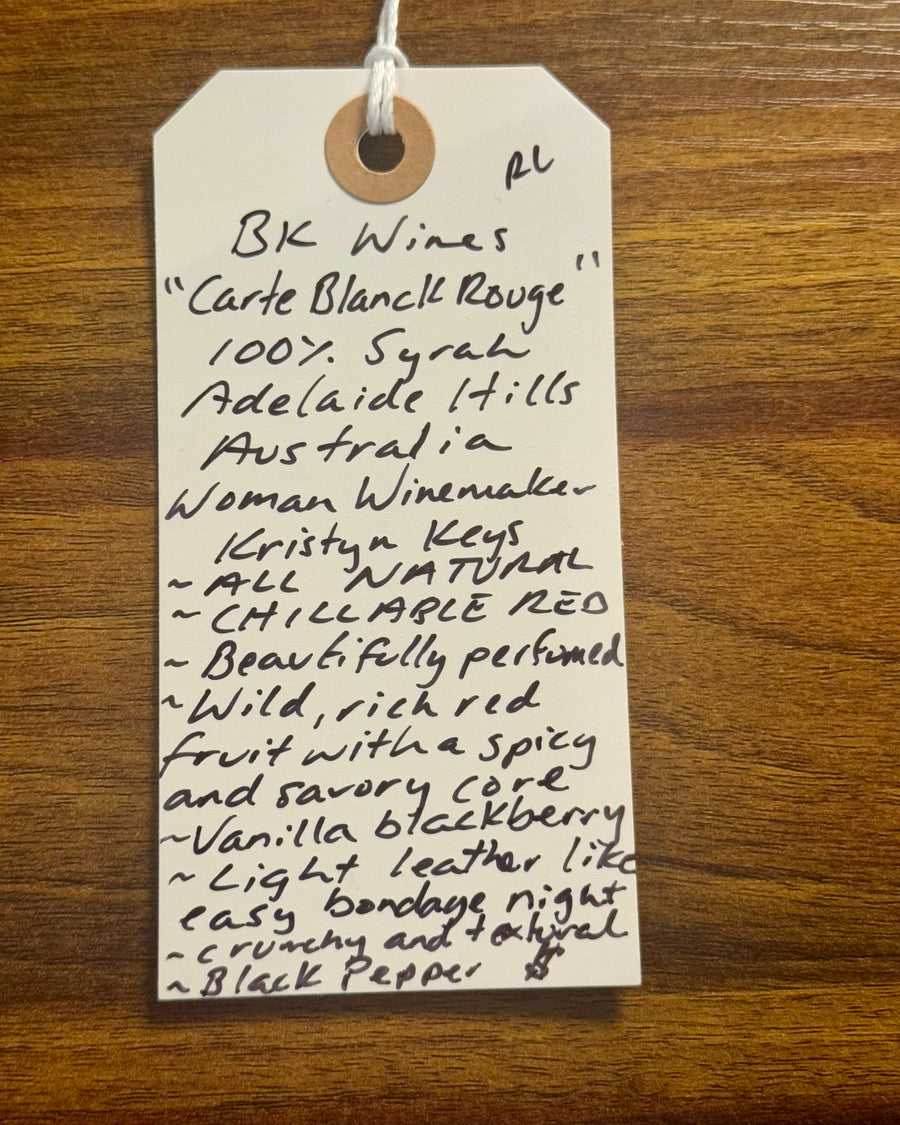 RL
BK Wines
"Carte Blanck Rouge"
100% Syrah
Adelaide Hills
Australia
Woman Winemaker
Kristyn Keys
~ ALL NATURAL
~ CHILLABLE RED
~ Beautifully perfumed
~ Wild, rich red
fruit with a spicy
and savory core
~ Vanilla blackberry
~ Light leather like
easy bondage night
~ crunchy and textural
~ Black Pepper